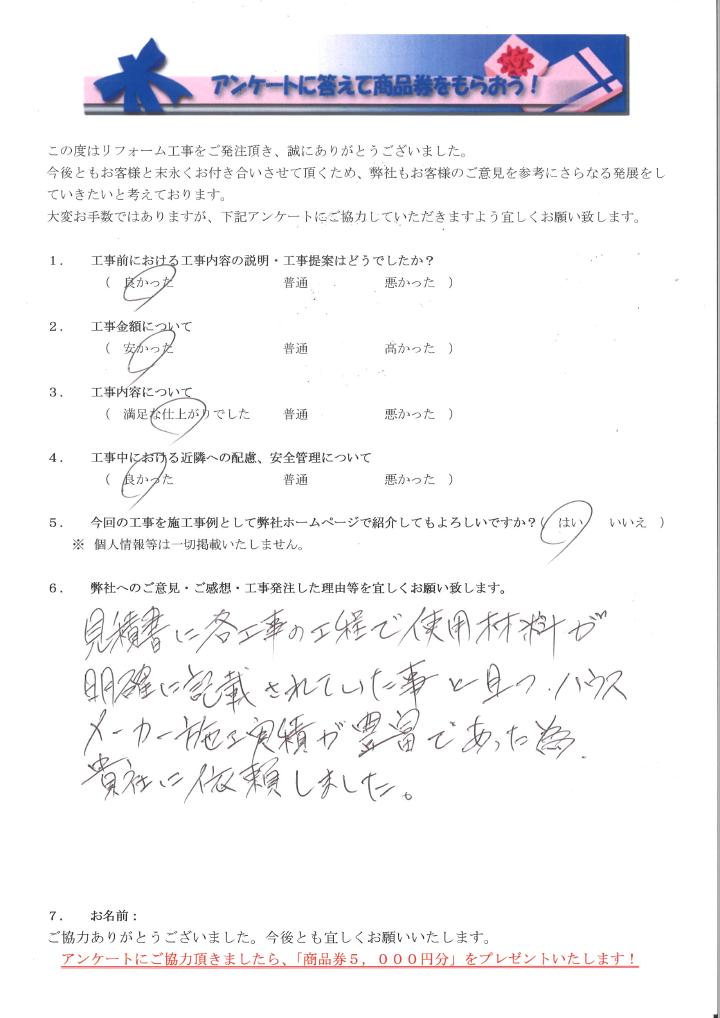 アンケートに答えて商品券をもらおう！
この度はリフォーム工事をご発注頂き、誠にありがとうございました。
今後ともお客様と末永くお付き合いさせて頂くため、弊社もお客様のご意見を参考にさらなる発展をし
ていきたいと考えております。
大変お手数ではありますが、下記アンケートにご協力していただきますよう宜しくお願い致します。
１． 工事前における工事内容の説明・工事提案はどうでしたか？
（ 良かった 普通 悪かった ）
２． 工事金額について
（ 安かった 普通 高かった ）
３． 工事内容について
（ 満足な仕上がりでした 普通 悪かった ）
４． 工事中における近隣への配慮、安全管理について
（ 良かった 普通 悪かった ）
５． 今回の工事を施工事例として弊社ホームページで紹介してもよろしいですか？（ はい いいえ ）
※ 個人情報等は一切掲載いたしません。
６． 弊社へのご意見・ご感想・工事発注した理由等を宜しくお願い致します。
見積書に各工事の工程で使用材料が
明確に記載されていた事と且つ、ハウス
メーカー施工実績が豊富であった為、
貴社に依頼しました。
７． お名前：
ご協力ありがとうございました。今後とも宜しくお願いいたします。
アンケートにご協力頂きましたら、「商品券５，０００円分」をプレゼントいたします！